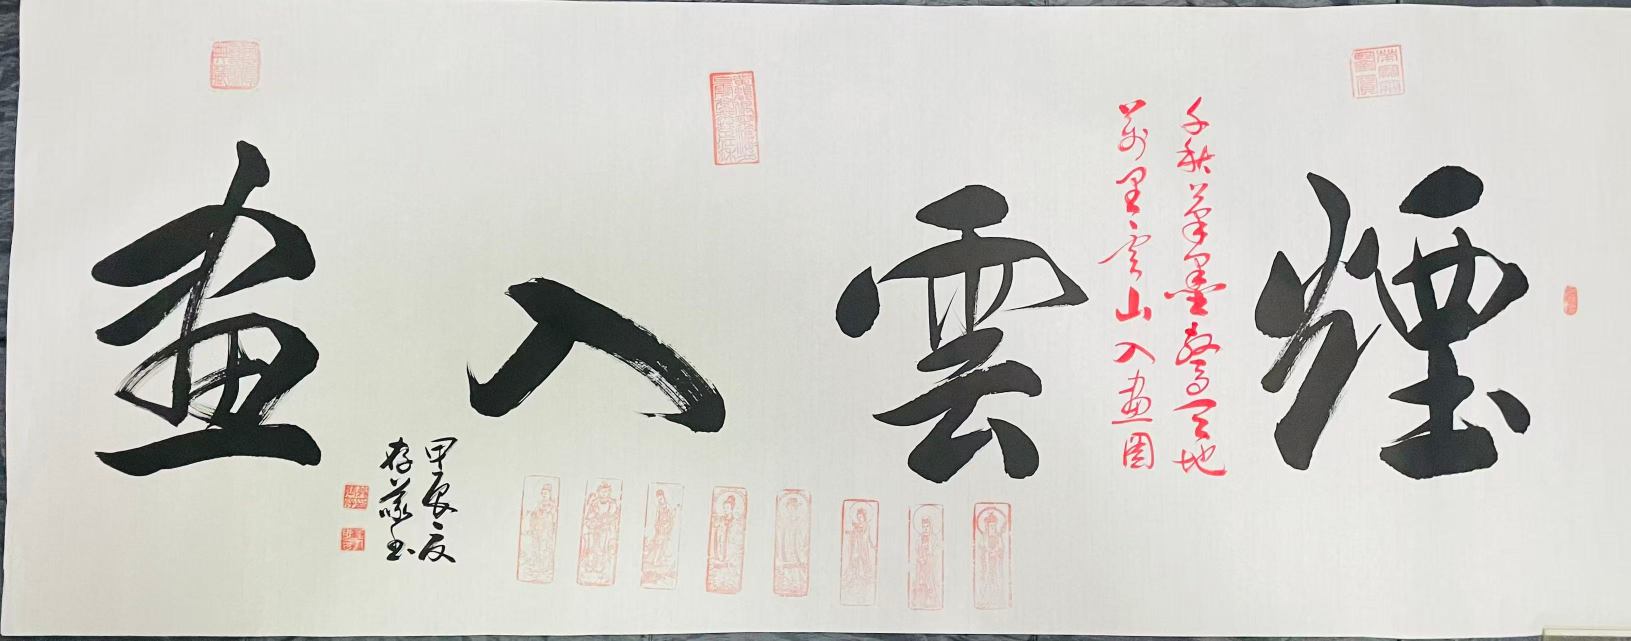 煙雲入畫
千秋筆墨驚天地
萬里雲山入畫圖
甲辰夏
存義書